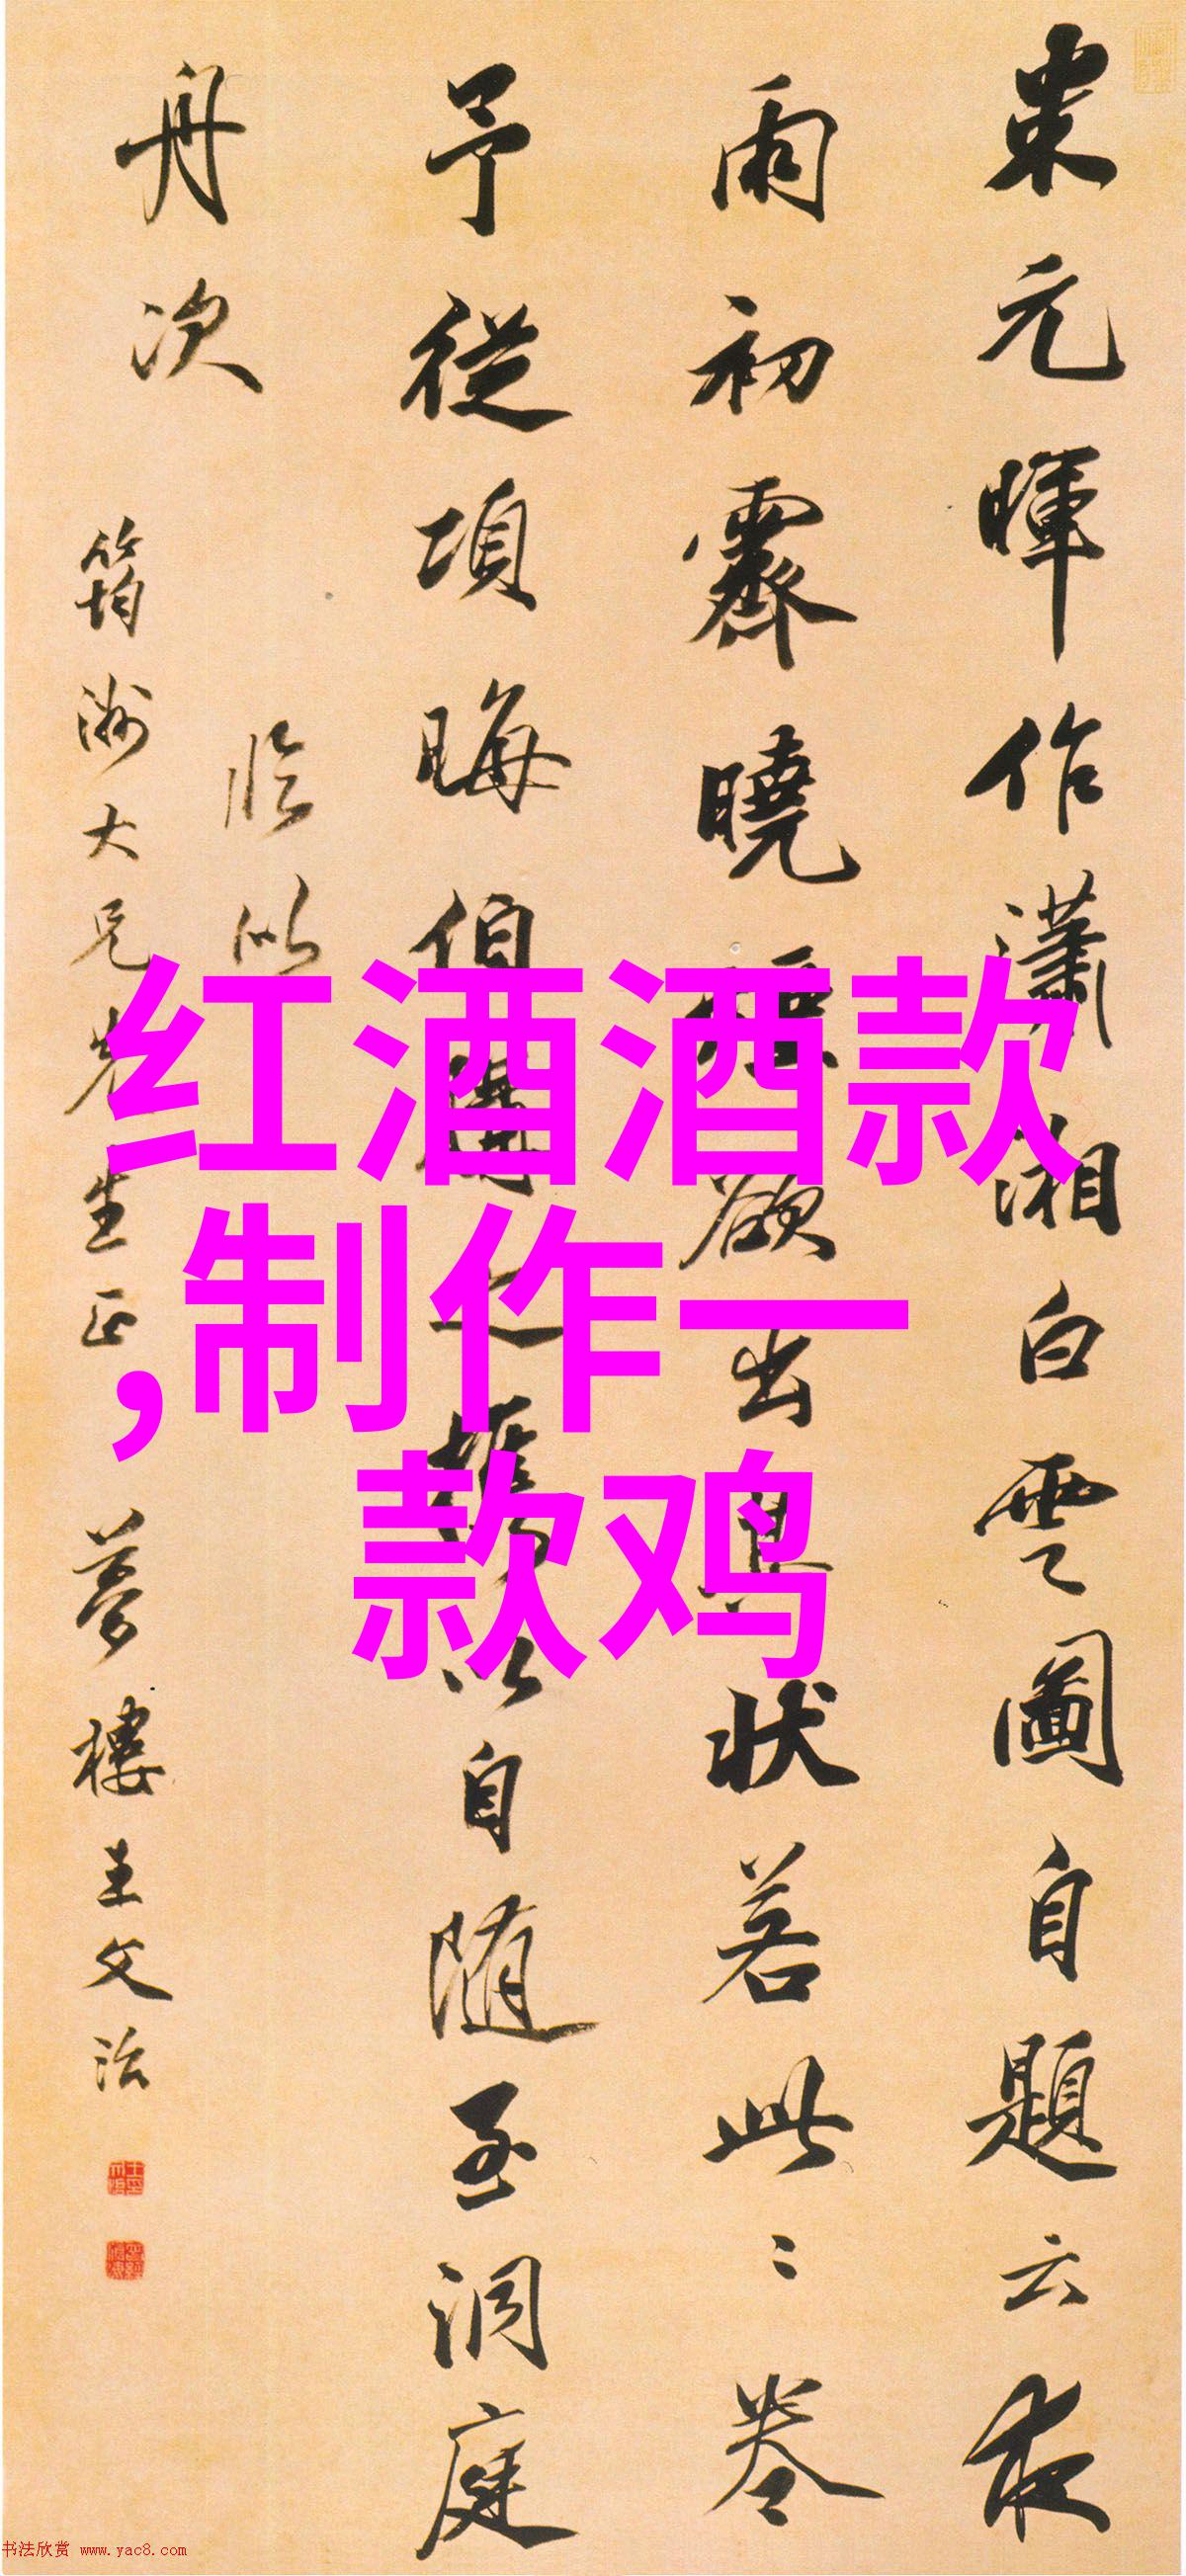 米元暉作瀟湘白雲圖自題云夜
雨初霽曉煙欲出其狀若此〻卷
予從項晦伯購之攜以自隨至洞庭
舟次
臨似
筠洲大兄先生正 夢樓王文治
红酒酒款
,制作一
款鸡
书法欣赏 www.yac8.com